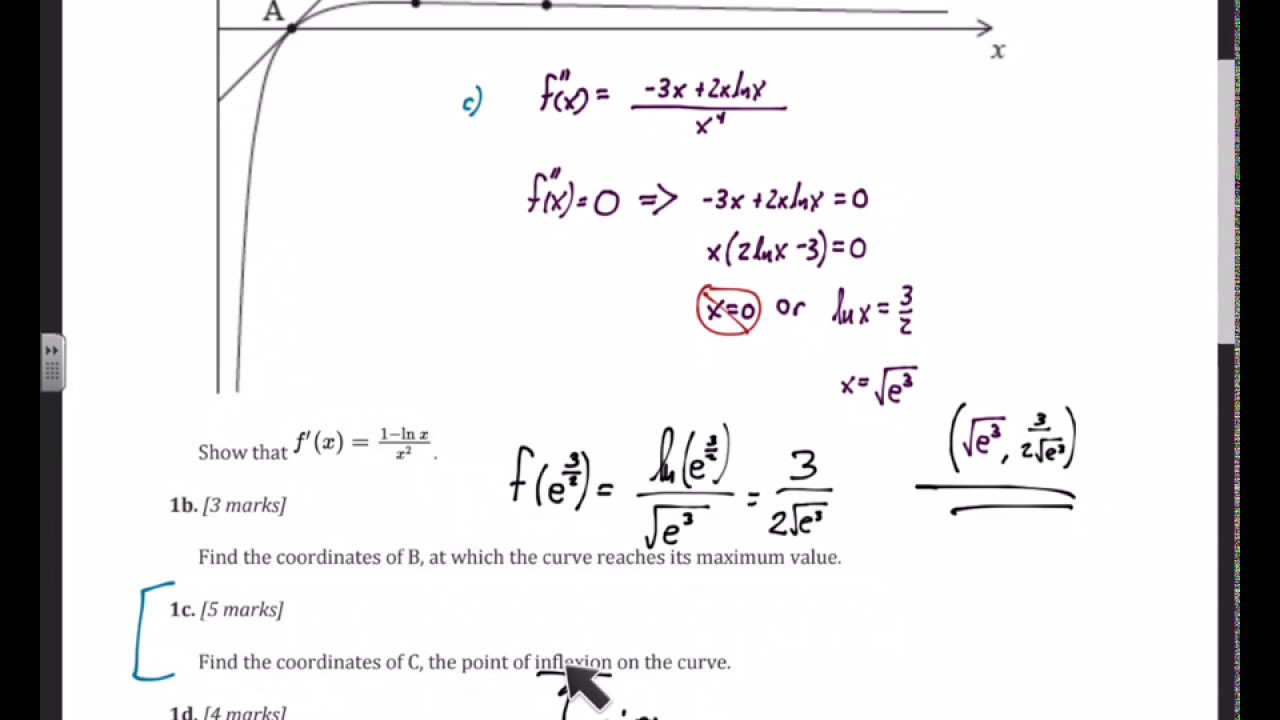 A
x
c) f''(x) = (-3x + 2x ln x) / x⁴
f''(x) = 0 => -3x + 2x ln x = 0
x(2 ln x - 3) = 0
x=0 or ln x = 3/2
x = √e³
(√e³, 3/(2√e³))
Show that f′(x) = (1−ln x)/x².
f(e^(3/2)) = ln(e^(3/2))/√e³ = 3/(2√e³)
1b. [3 marks]
Find the coordinates of B, at which the curve reaches its maximum value.
1c. [5 marks]
Find the coordinates of C, the point of inflexion on the curve.
1d. [4 marks]